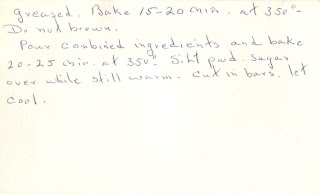 greased. Bake 15-20 min. at 350°-
Do not brown.
Pour combined ingredients and bake
20-25 min. at 350°. Sift pwd. sugar
over while still warm. Cut in bars, let
cool.